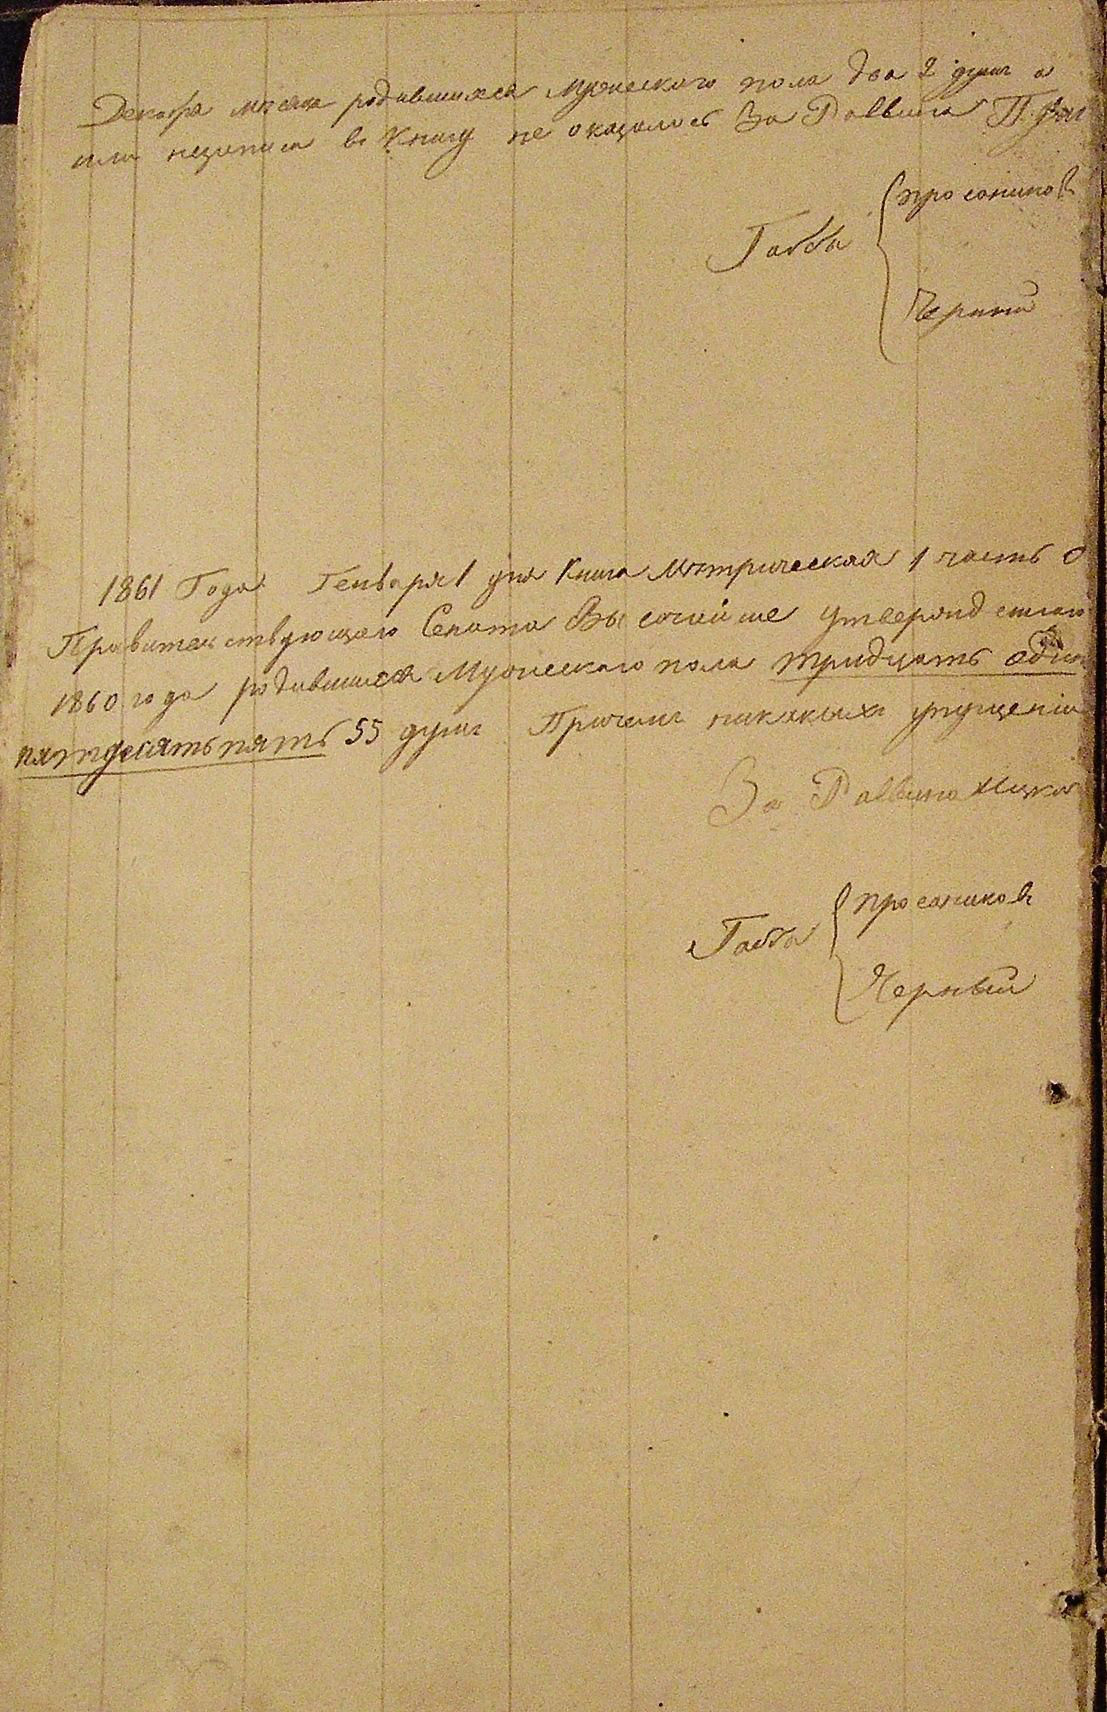 Декабря месяца родившихся мужескаго пола два 2 душъ а
или незаписи въ Книгу не оказалось За Раввина П.
Габбы { Просаниковъ
Черный
1861 Года Генваря 1 дня Книга Метрическая 1 часть О
Правительствующаго Сената Высочайше утвержденнаго
1860 года родившихся Мужескаго пола тридцать один
пятдесять пять 55 душъ Причемъ никакихъ упущеній
За Раввина
Габбы { Просаниковъ
Черный